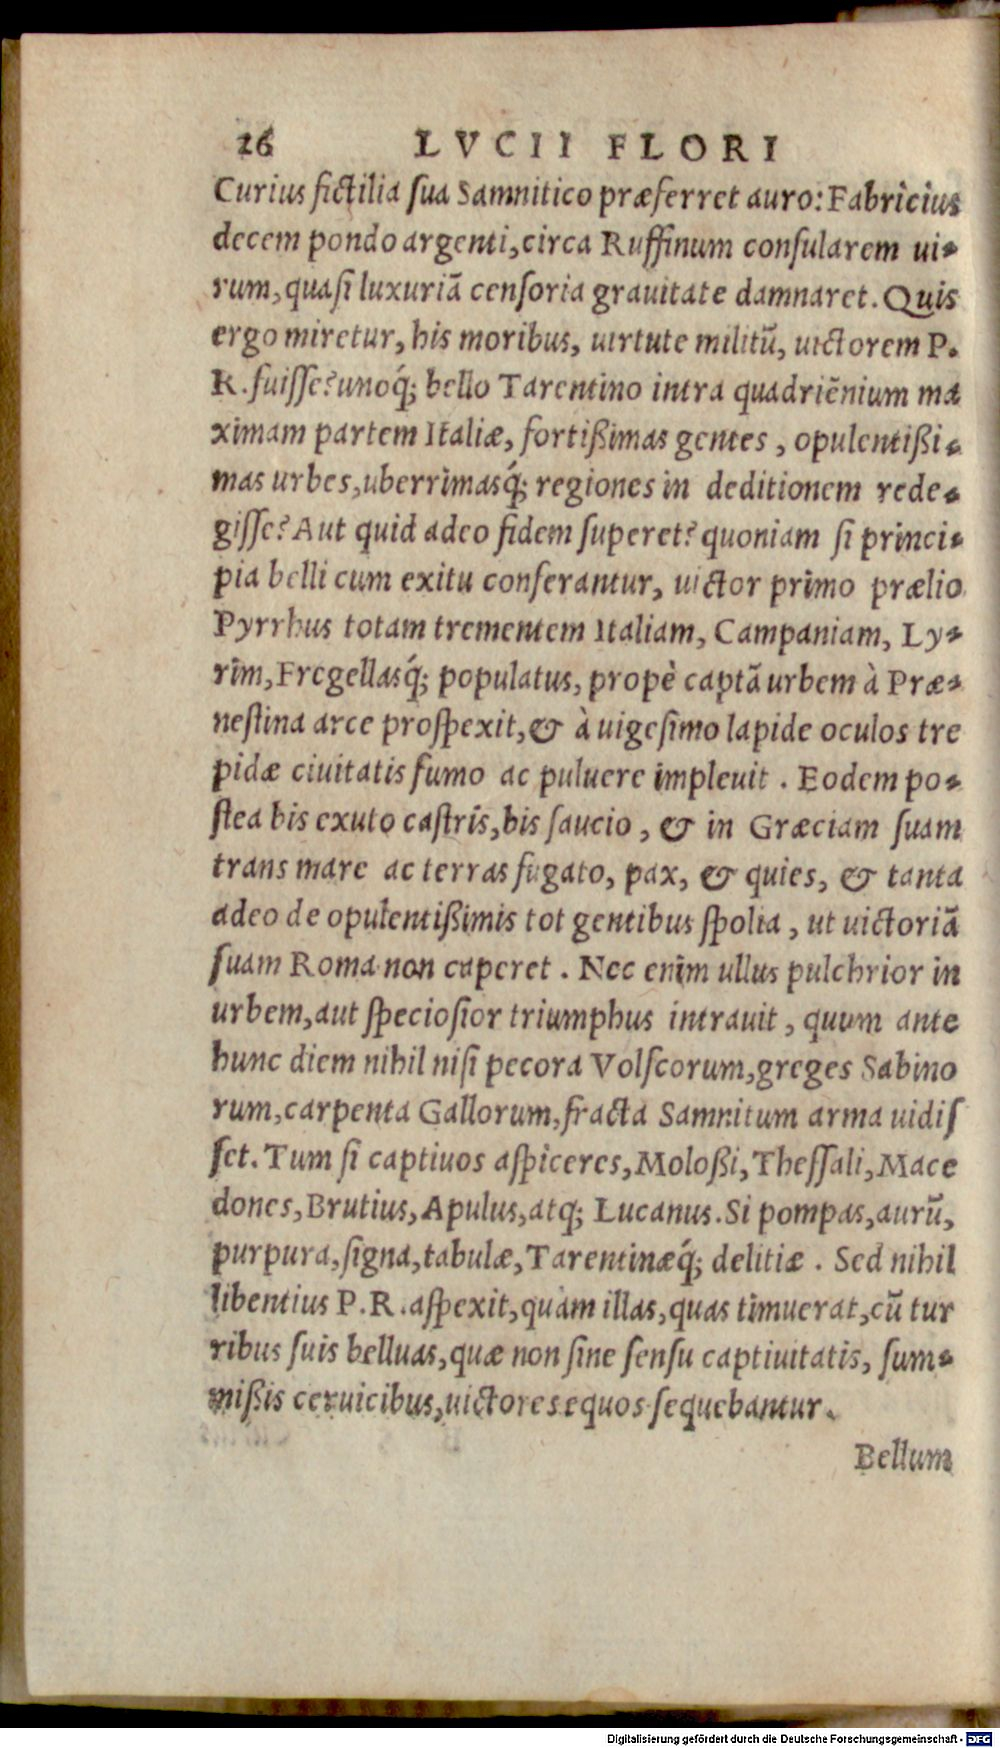 26 LVCII FLORI
Curius fictilia ſua Samnitico præferret auro: Fabricius
decem pondo argenti, circa Ruffinum conſularem ui-
rum, quaſi luxuriā cenſoria grauitate damnaret. Quis
ergo miretur, his moribus, uirtute militū, uictorem P.
R. fuiſſe? unoq́; bello Tarentino intra quadriēnium ma
ximam partem Italiæ, fortißimas gentes, opulentißi-
mas urbes, uberrimasq́; regiones in deditionem rede-
giſſe? Aut quid adeo fidem ſuperet? quoniam ſi princi-
pia belli cum exitu conferantur, uictor primo prælio
Pyrrhus totam trementem Italiam, Campaniam, Ly-
rim, Fregellasq́; populatus, propè captā urbem à Præ-
neſtina arce proſpexit, & à uigeſimo lapide oculos tre
pidæ ciuitatis fumo ac puluere impleuit. Eodem po-
ſtea bis exuto caſtris, bis ſaucio, & in Græciam ſuam
trans mare ac terras fugato, pax, & quies, & tanta
adeo de opulentißimis tot gentibus ſpolia, ut uictoriā
ſuam Roma non caperet. Nec enim ullus pulchrior in
urbem, aut ſpecioſior triumphus intrauit, quum ante
hunc diem nihil niſi pecora Volſcorum, greges Sabino
rum, carpenta Gallorum, fracta Samnitum arma uidiſ
ſet. Tum ſi captiuos aſpiceres, Moloßi, Theſſali, Mace
dones, Brutius, Apulus, atq; Lucanus. Si pompas, aurū,
purpura, ſigna, tabulæ, Tarentinæq́; delitiæ. Sed nihil
libentius P. R. aſpexit, quàm illas, quas timuerat, cū tur
ribus ſuis belluas, quæ non ſine ſenſu captiuitatis, ſum-
mißis ceruicibus, uictores equos ſequebantur.
Bellum
Digitalisierung gefördert durch die Deutsche Forschungsgemeinschaft - DFG